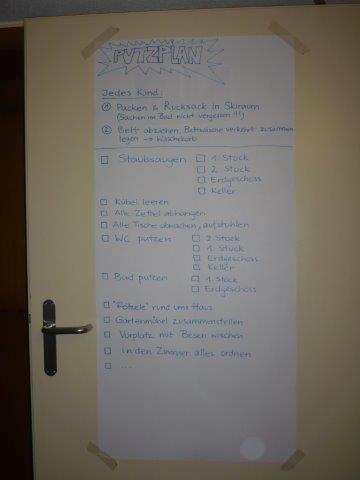 PUTZPLAN
Jedes Kind:
① Packen & Rucksack in Skiraum
(Sachen im Bad nicht vergessen !!!)
② Bett abziehen, Bettwäsche verkehrt zusammen
legen → Wäschekorb
Staubsaugen
1. Stock
2. Stock
Erdgeschoss
Keller
Kübel leeren
Alle Zettel abhängen
Alle Tische abwaschen, aufstuhlen
WC putzen
2. Stock
1. Stock
Erdgeschoss
Keller
Bad putzen
1. Stock
Erdgeschoss
"Fötzele" rund ums Haus
Gartenmöbel zusammenstellen
Vorplatz mit Besen wischen
In den Zimmer alles ordnen
...